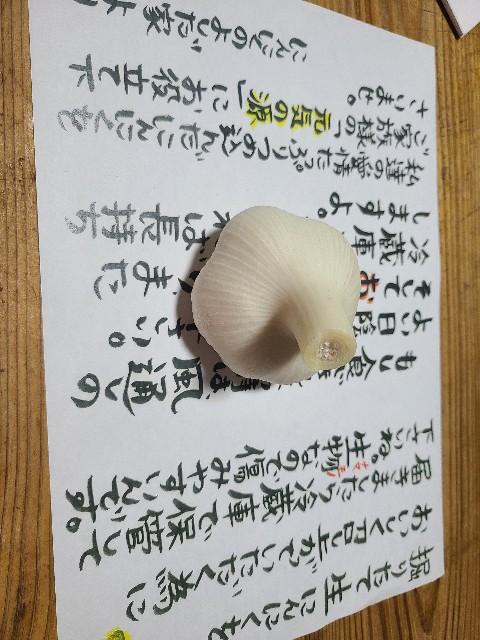 掘りたて生にんにくを
おいしく召し上がっていただく為に
届きましたら冷蔵庫で保管して
下さいね。生物なので傷みやすいんです。
もし食べ は、風通しの
よい日陰 さい。
そして また
冷蔵庫 れば長持ち
しますよ。
私達の愛情たっぷりつめ込んだにんにくを
ご家族様の「元気の源」にお役立て下
さりませ。
にんにくのよしだ家より